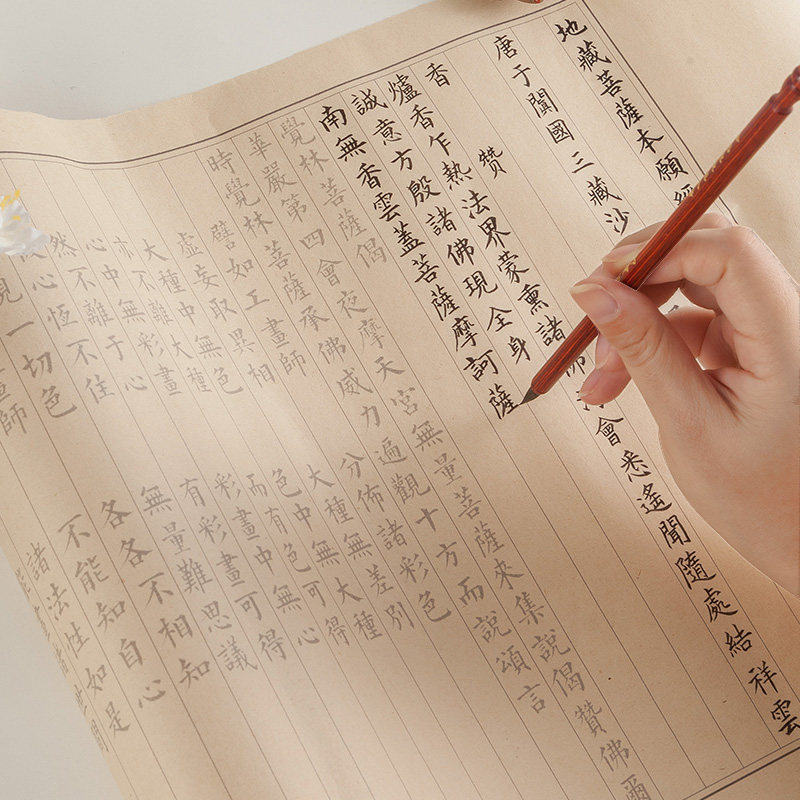 地藏菩薩本願經
唐于闐國三藏沙
香 贊
爐香乍熱法界蒙熏諸佛會悉遙聞隨處結祥雲
誠意方殷諸佛現全身
南無香雲蓋菩薩摩訶薩
覺林菩薩偈
華嚴第四會夜摩天宮無量菩薩來集說偈贊佛爾
時覺林菩薩承佛威力遍觀十方而說頌言
譬如工畫師 分佈諸彩色
虛妄取異相 大種無差別
大種中無色 色中無大種
亦不離大種 而有色可得
心中無彩畫 彩畫中無心
然不離于心 有彩畫可得
心恆不住 無量難思議
一切色 各各不相知
畫師 不能知自心
諸法性如是